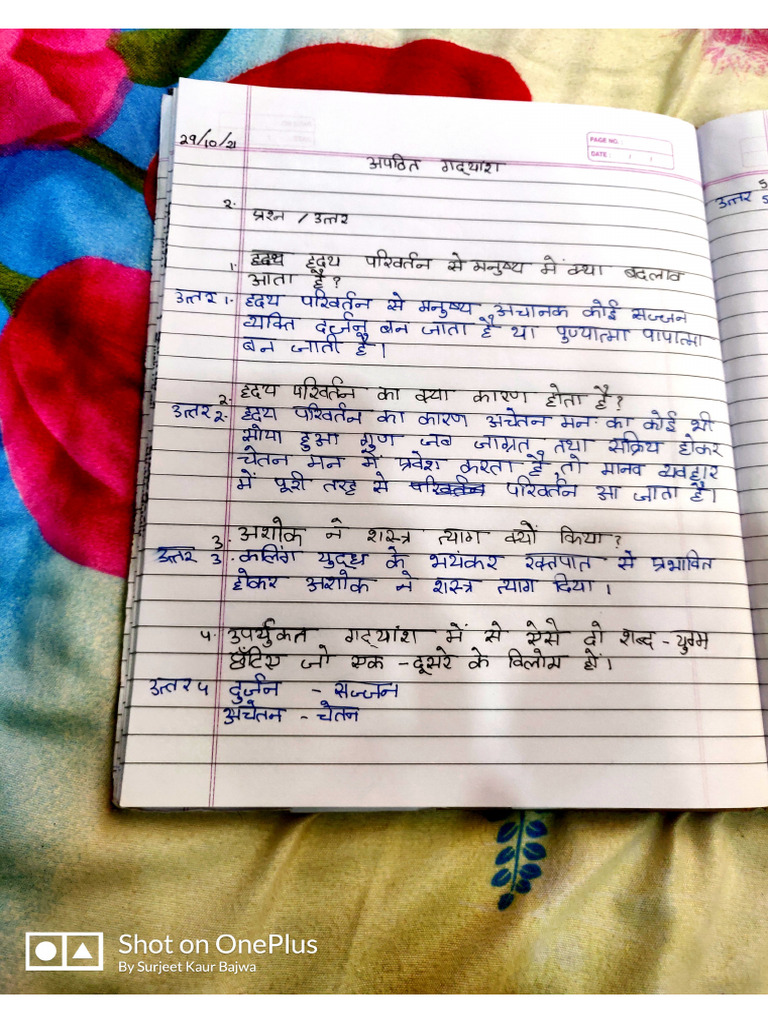 PAGE NO.:
DATE: / /
29/10/21
अपठित गद्यांश
2. प्रश्न / उत्तर
1. हृदय परिवर्तन से मनुष्य में क्या बदलाव
आता है?
उत्तर 1. हृदय परिवर्तन से मनुष्य अचानक कोई सज्जन
व्यक्ति दर्जन बन जाता है या पुण्यात्मा पापात्मा
बन जाती है।
2. हृदय परिवर्तन का क्या कारण होता है?
उत्तर 2. हृदय परिवर्तन का कारण अचेतन मन का कोई भी
सोया हुआ गुण जब जाग्रत तथा सक्रिय होकर
चेतन मन में प्रवेश करता है तो मानव व्यवहार
में पूरी तरह से परिवर्तन आ जाता है।
3. अशोक ने शस्त्र त्याग क्यों किया?
उत्तर 3. कलिंग युद्ध के भयंकर रक्तपात से प्रभावित
होकर अशोक ने शस्त्र त्याग दिया।
4. उपर्युक्त गद्यांश में से ऐसे दो शब्द - युग्म
छाँटिए जो एक - दूसरे के विलोम हों।
उत्तर 4 दुर्जन - सज्जन
अचेतन - चेतन
उत्तर
Shot on OnePlus
By Surjeet Kaur Bajwa